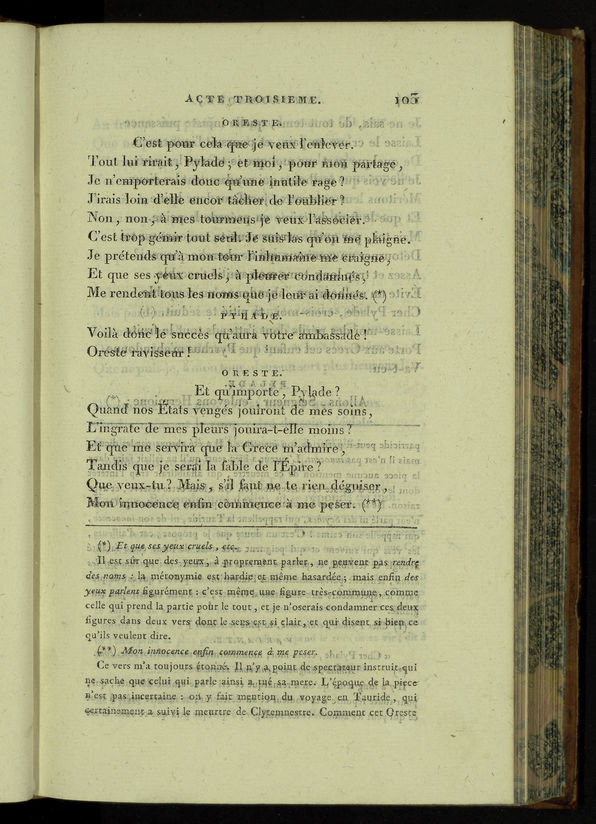 ACTE TROISIEME. 103
ORESTE.
C'est pour cela que je veux l'enlever.
Tout lui rirait, Pylade; et moi, pour mon partage,
Je n'emporterais donc qu'une inutile rage?
J'irais loin d'elle encor tâcher de l'oublier?
Non, non, à mes tourmens je veux l'associer.
C'est trop gémir tout seul. Je suis las qu'on me plaigne.
Je prétends qu'à mon tour l'inhumaine me craigne,
Et que ses yeux cruels, à pleurer condamnés,
Me rendent tous les noms que je leur ai donnés. (*)
PYLADE.
Voilà donc le succès qu'aura votre ambassade!
Oreste ravisseur!
ORESTE.
Et qu'importe, Pylade?
Quand nos États vengés jouiront de mes soins,
L'ingrate de mes pleurs jouira-t-elle moins?
Et que me servira que la Grece m'admire,
Tandis que je serai la fable de l'Épire?
Que veux-tu? Mais, s'il faut ne te rien déguiser,
Mon innocence enfin commence à me peser. (**)
(*) Et que ses yeux cruels, etc.
Il est sûr que des yeux, à proprement parler, ne peuvent pas rendre
des noms: la métonymie est hardie et même hasardée; mais enfin des
yeux parlent figurément: c'est même une figure très-commune, comme
celle qui prend la partie pour le tout, et je n'oserais condamner ces deux
figures dans deux vers dont le sens est si clair, et qui disent si bien ce
qu'ils veulent dire.
(**) Mon innocence enfin commence à me peser.
Ce vers m'a toujours étonné. Il n'y a point de spectateur instruit qui
ne sache que celui qui parle ainsi a tué sa mere. L'époque de la piece
n'est pas incertaine: on y fait mention du voyage en Tauride, qui
certainement a suivi le meurtre de Clytemnestre. Comment cet Oreste